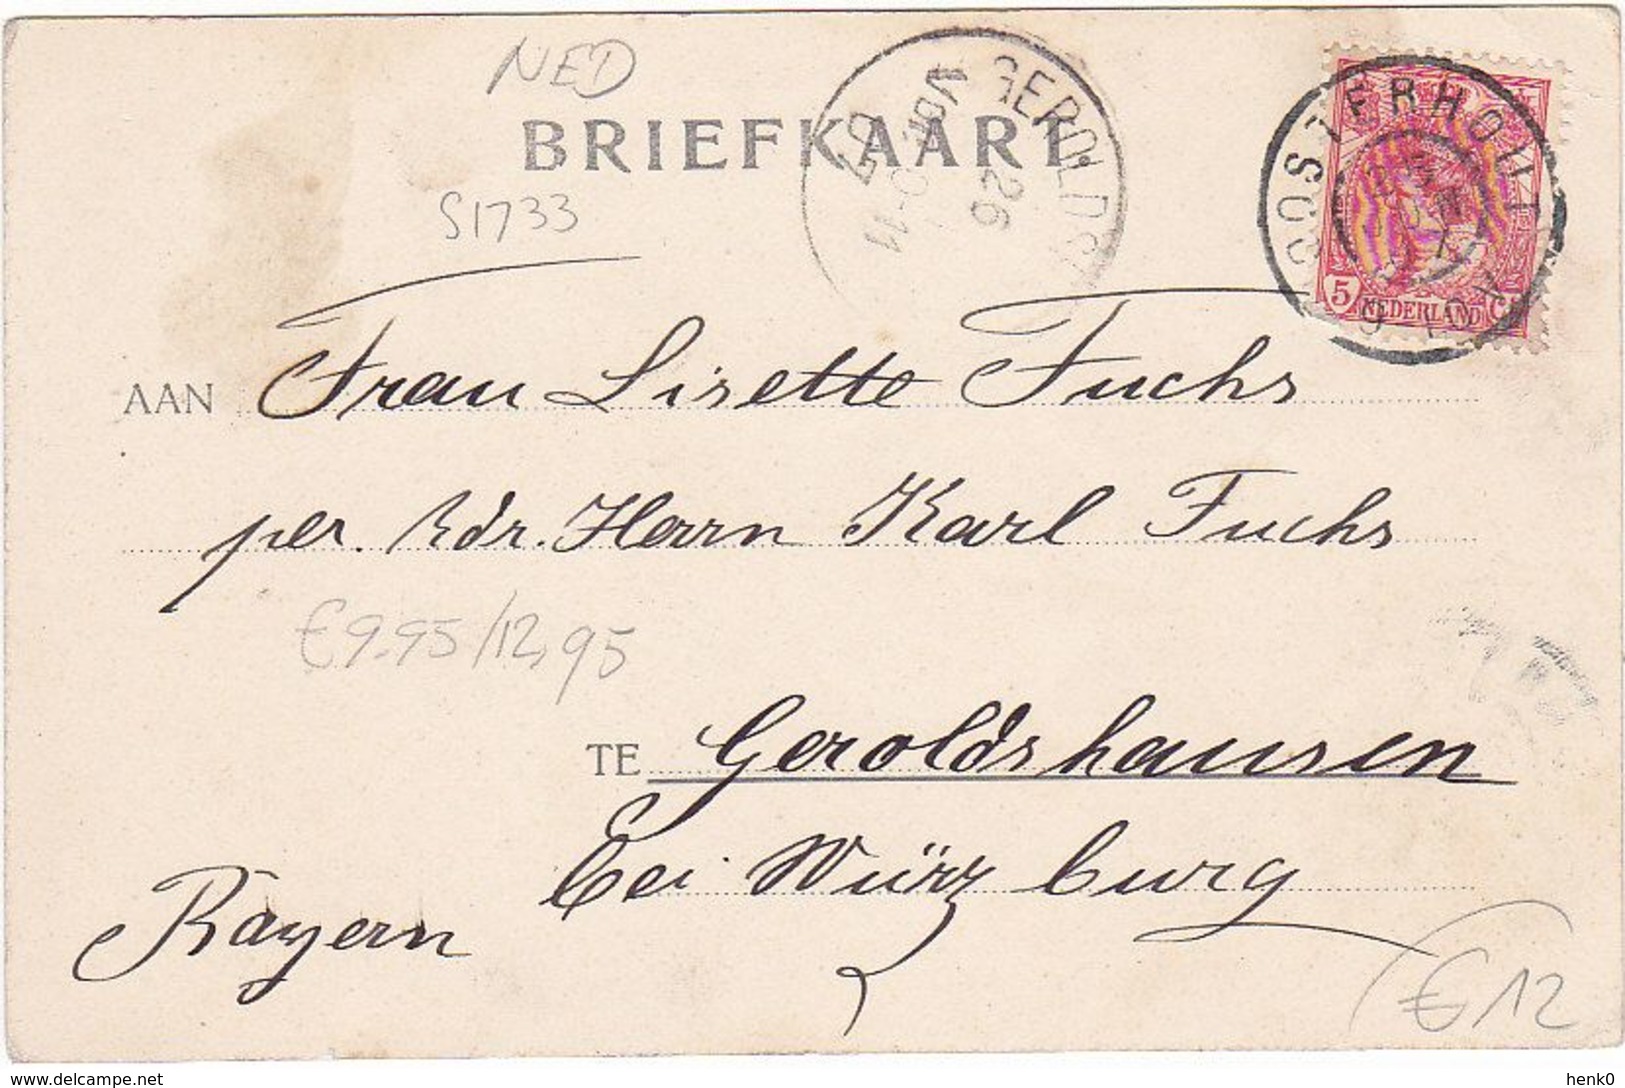 NED
BRIEFKAART
GEROLDSH
26
VOR
10-11
07
S1733
OOSTERHOUT
5 NEDERLAND
AAN Frau Lisette Fuchs
per. Adr. Herrn Karl Fuchs
€9.95/12,95
TE Geroldshausen
bei Würzburg
Bayern
€12
delcampe.net
henk0